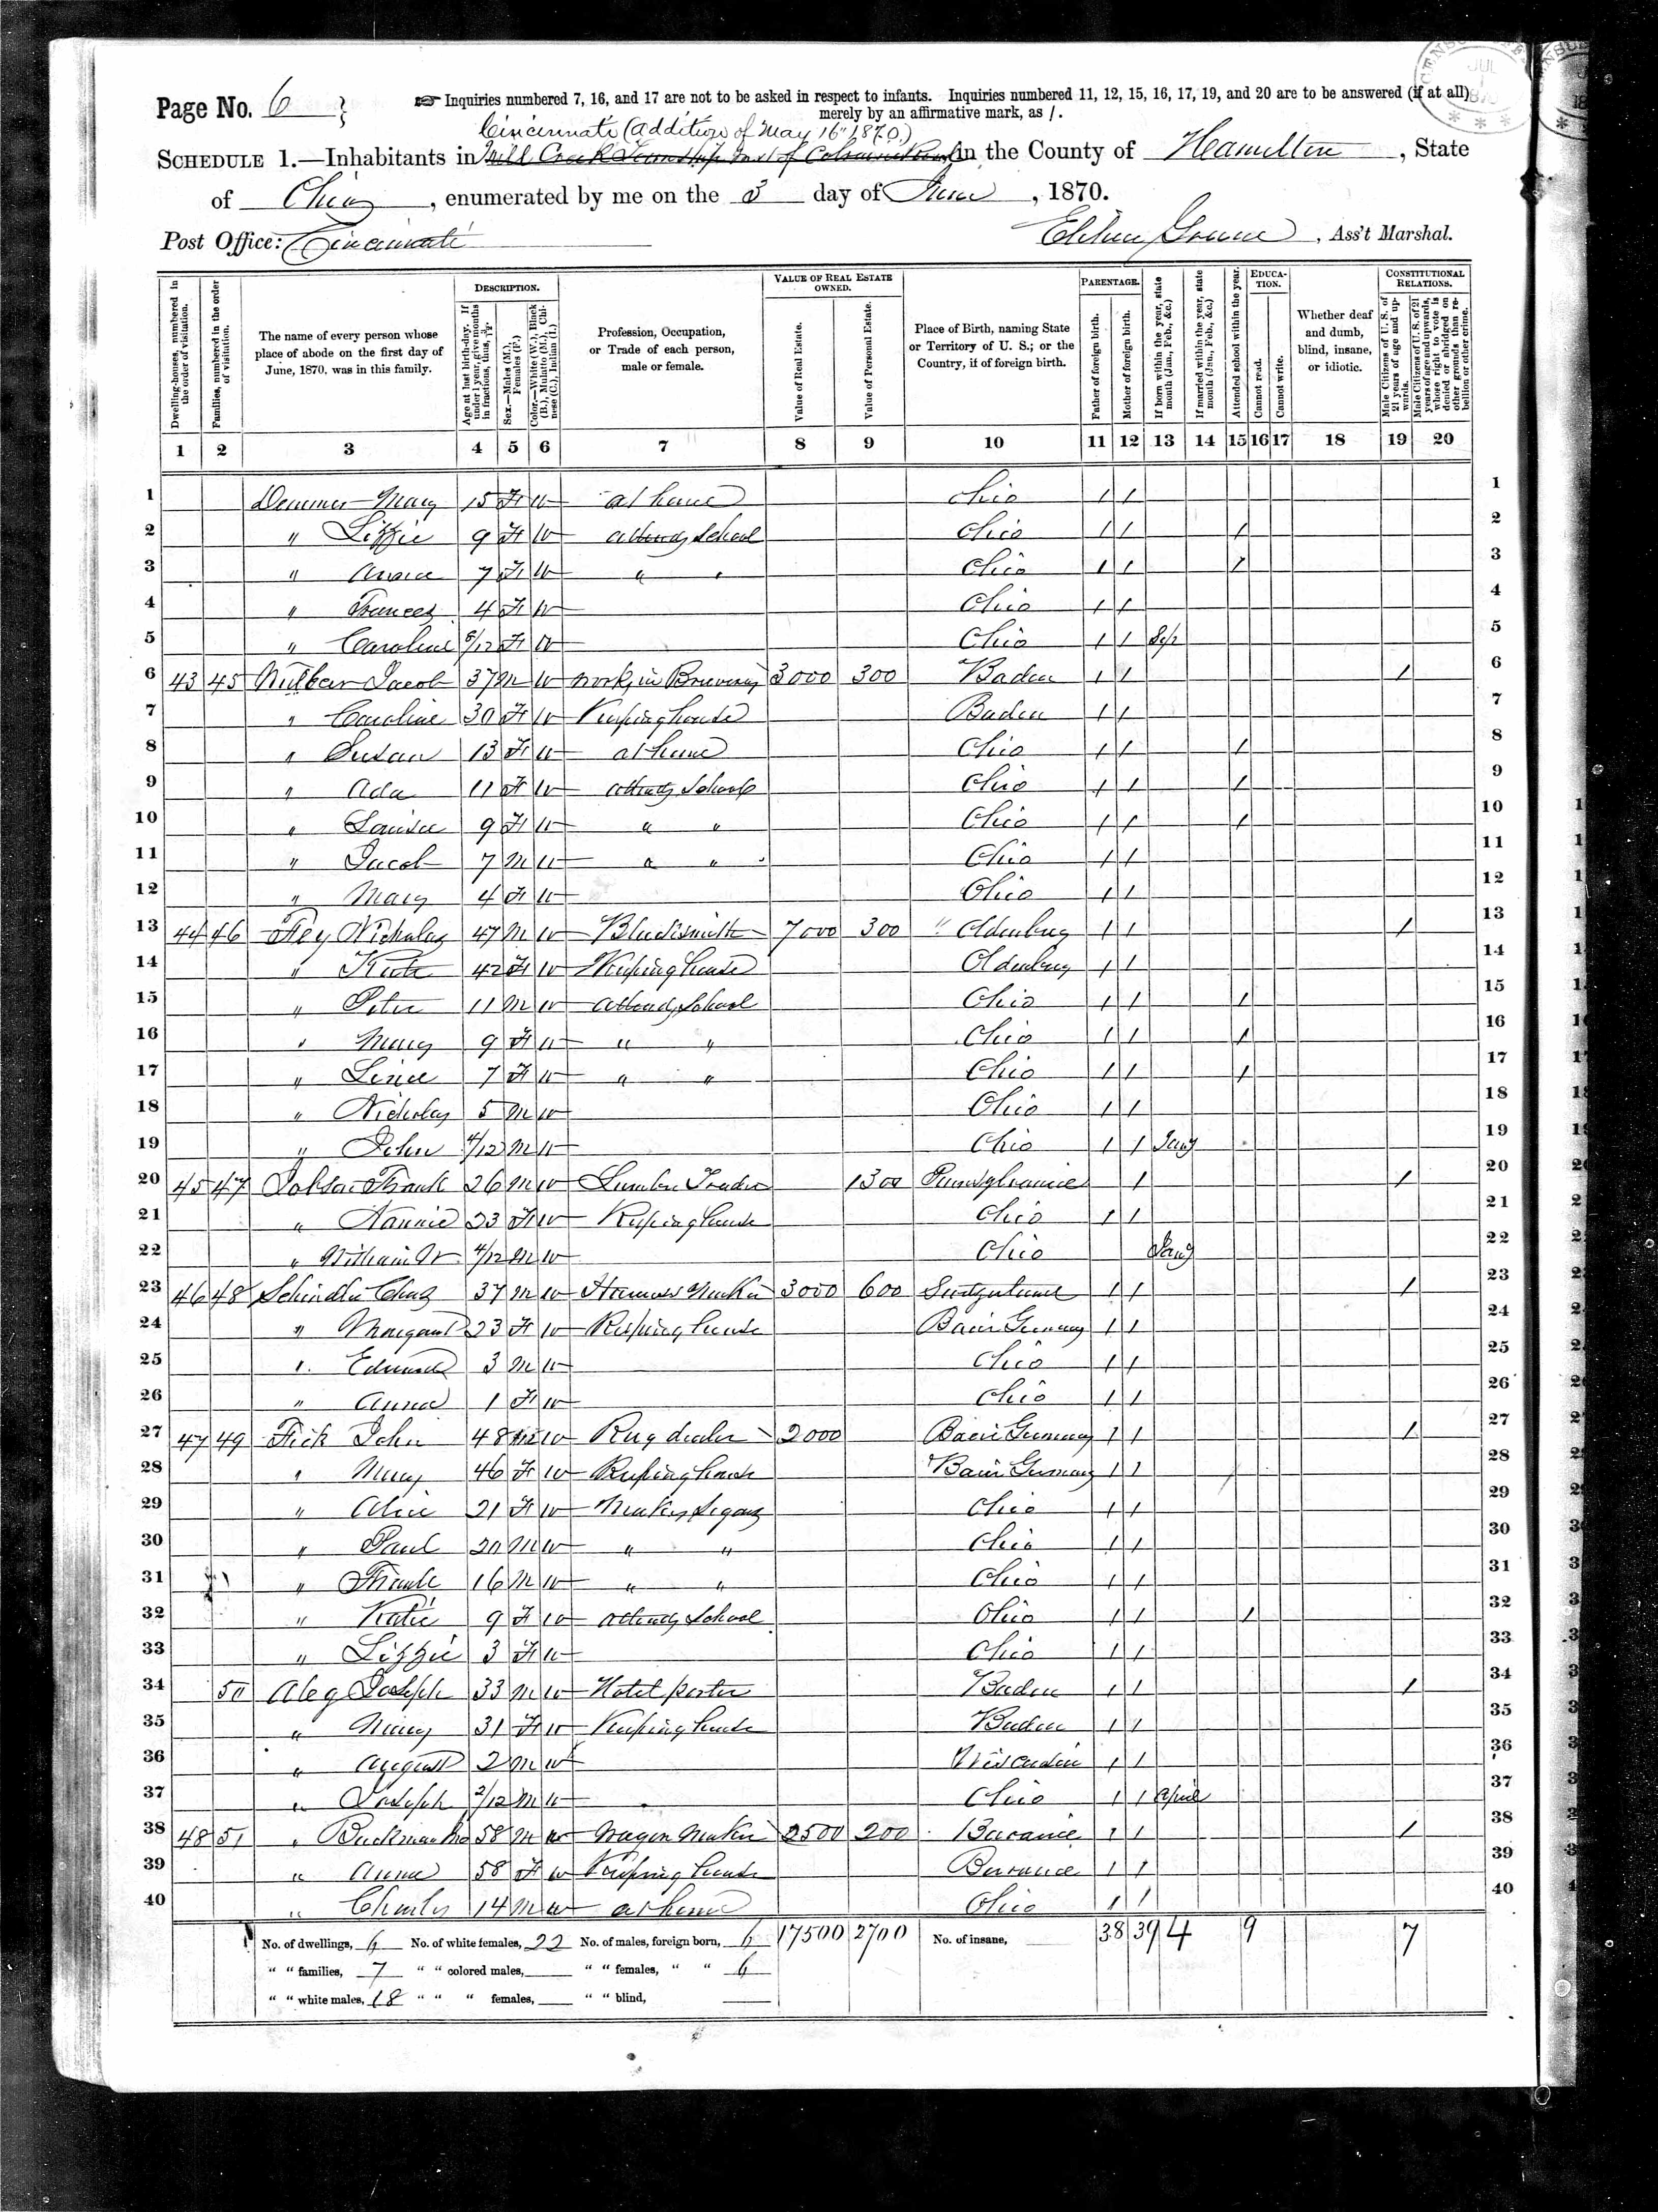 Page No. 6
Inquiries numbered 7, 16, and 17 are not to be asked in respect to infants. Inquiries numbered 11, 12, 15, 16, 17, 19, and 20 are to be answered (if at all)
merely by an affirmative mark, as /.
Cincinnati (addition of May 16" 1870.)
SCHEDULE 1.—Inhabitants in Mill Creek Township in the County of Hamilton, State
of Ohio, enumerated by me on the 3 day of June, 1870.
Post Office: Cincinnati
Ass't Marshal.
Dwelling-houses, numbered in the order of visitation.
Families, numbered in the order of visitation.
The name of every person whose place of abode on the first day of June, 1870, was in this family.
DESCRIPTION.
Age at last birth-day. If under 1 year, give months in fractions, thus, 3/12.
Sex.—Males (M.), Females (F.)
Color.—White (W.), Black (B.), Mulatto (M.), Chinese (C.), Indian (I.)
Profession, Occupation, or Trade of each person, male or female.
VALUE OF REAL ESTATE OWNED.
Value of Real Estate.
Value of Personal Estate.
Place of Birth, naming State or Territory of U. S.; or the Country, if of foreign birth.
PARENTAGE.
Father of foreign birth.
Mother of foreign birth.
If born within the year, state month (Jan., Feb., &c.)
If married within the year, state month (Jan., Feb., &c.)
Attended school within the year.
EDUCATION.
Cannot read.
Cannot write.
Whether deaf and dumb, blind, insane, or idiotic.
CONSTITUTIONAL RELATIONS.
Male Citizens of U. S. of 21 years of age and upwards.
Male Citizens of U. S. of 21 years of age and upwards, whose right to vote is denied or abridged on other grounds than rebellion or other crime.
1 2 3 4 5 6 7 8 9 10 11 12 13 14 15 16 17 18 19 20
1 Mary 15 F W at home Ohio / / 1
2 " Lizzie 9 F W attends School Ohio / / / 2
3 " Annie 7 F W " " Ohio / / / 3
4 " Frances 4 F W Ohio / / 4
5 " Caroline /12 F W Ohio / / Sep 5
6 43 45 Jacob 37 M W works in Brewery 3000 300 Baden / / / 6
7 " Caroline 30 F W Keeping house Baden / / 7
8 " Susan 13 F W at home Ohio / / / 8
9 " Ada 11 F W attends School Ohio / / / 9
10 " Louisa 9 F W " " Ohio / / / 10
11 " Jacob 7 M W " " Ohio / / 11
12 " Mary 4 F W Ohio / / 12
13 44 46 Fey Nicholas 47 M W Blacksmith 7000 300 " Oldenburg / / / 13
14 " Kate 42 F W Keeping house Oldenburg / / 14
15 " Peter 11 M W attends School Ohio / / / 15
16 " Mary 9 F W " " Ohio / / / 16
17 " Lena 7 F W " " Ohio / / / 17
18 " Nicholas 5 M W Ohio / / 18
19 " John 4/12 M W Ohio / / Jany 19
20 45 47 Frank 26 M W Lumber 1300 Pennsylvania / / 20
21 " Nannie 23 F W Keeping house Ohio / / 21
22 " William 4/12 M W Ohio Jany 22
23 46 48 Schindler Chas 37 M W Harness Maker 3000 600 Switzerland / / / 23
24 " Margaret 23 F W Keeping house Baiir Germany / / 24
25 " Edward 3 M W Ohio / / 25
26 " Anna 1 F W Ohio / / 26
27 47 49 Fick John 48 M W Rag dealer 2000 Baiir Germany / / / 27
28 " Mary 46 F W Keeping house Baiir Germany / / 28
29 " Alice 21 F W Makes Segars Ohio / / 29
30 " Paul 20 M W " " Ohio / / 30
31 " Frank 16 M W " " Ohio / / 31
32 " Katie 9 F W attends School Ohio / / / 32
33 " Lizzie 3 F W Ohio / / 33
34 50 Aleg Joseph 33 M W Hotel porter Baden / / / 34
35 " Mary 31 F W Keeping house Baden / / 35
36 " August 2 M W Wisconsin / / 36
37 " Joseph 2/12 M W Ohio / / April 37
38 48 51 " 58 M W Wagon Maker 2500 200 Bavaria / / / 38
39 " Anna 58 F W Keeping house Bavaria / / 39
40 " Charles 14 M W at home Ohio / / 40
No. of dwellings, 6 No. of white females, 22 No. of males, foreign born, 6 17500 2700 No. of insane, 38 39 4 9 7
" " families, 7 " " colored males, " " females, " " 6
" " white males, 18 " " " females, " " blind,